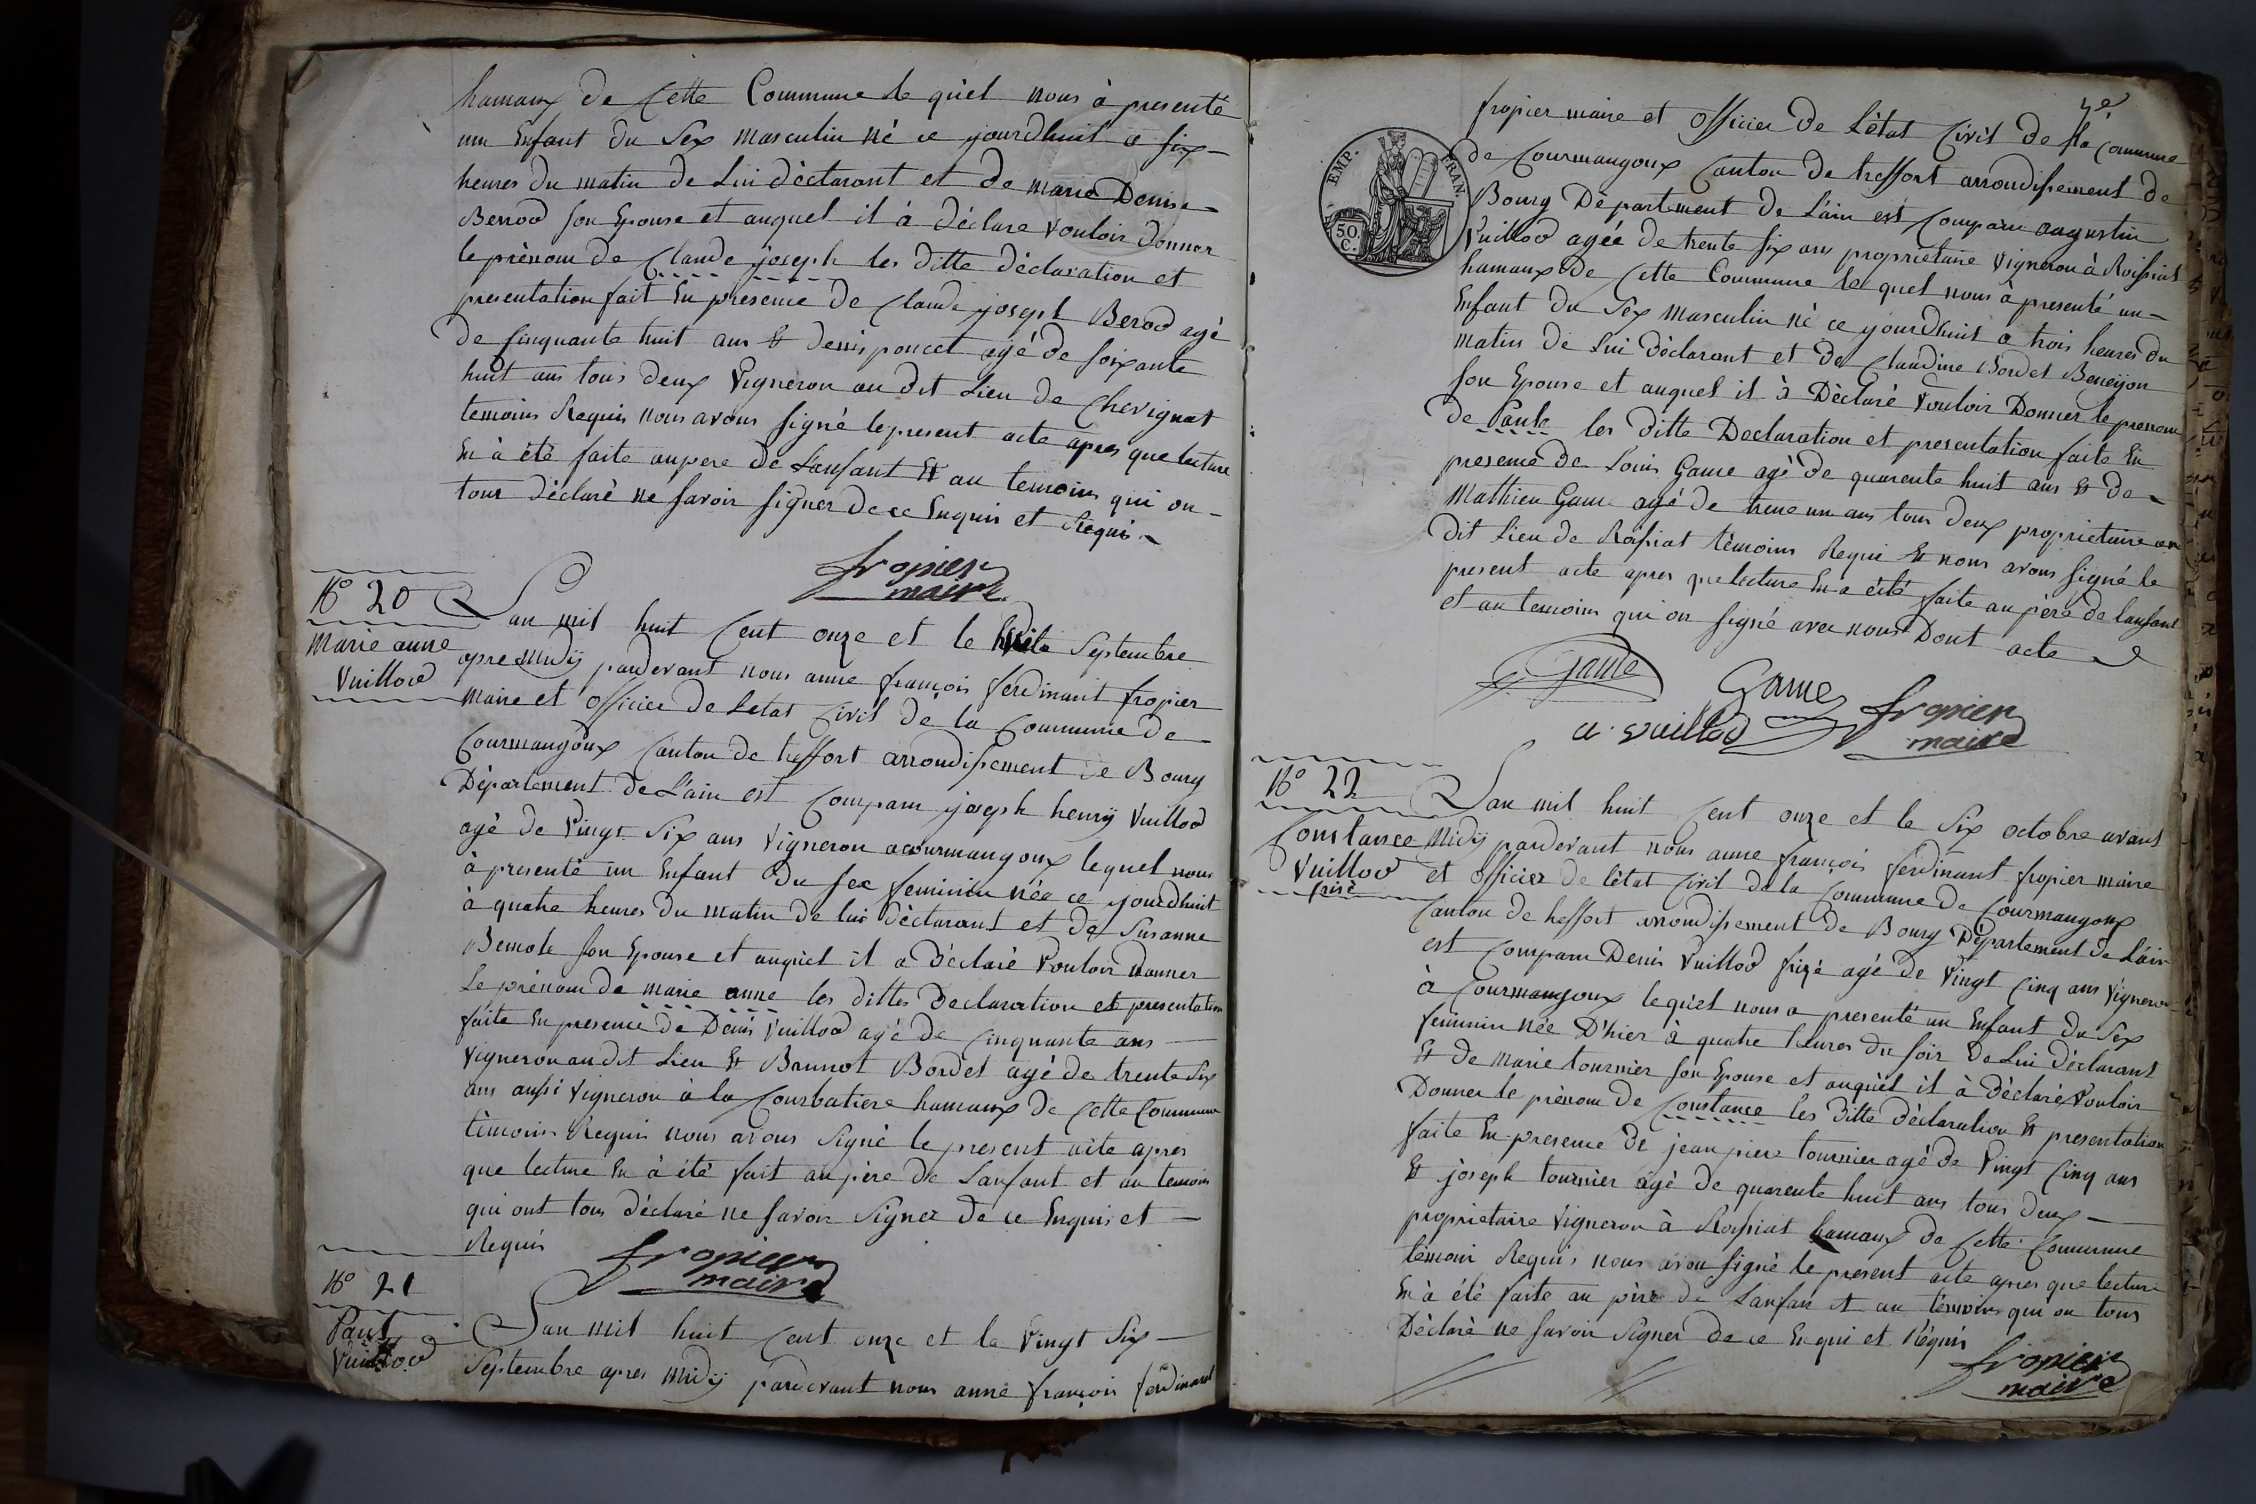 hamaux de Cette Commune le quèl nous à presenté
un Enfant du Sex masculin né ce jourdhuit a six
heures du matin de Lui dèclarant et de marie Denise
Berrod son Epouse et auquel il à déclare vouloir donner
le prènom de Claude joseph les ditte déclaration et
presentation fait En presence de Claude joseph Berod agé
de Cinquante huit ans Et denis poncet agé de soixante
huit ans tous deux Vigneron au dit Lieu de Chevignat
temoins Requis nous avons signé le present acte apres que lecture
En à été faite au pere de L'anfant Et au temoins qui on
tous déclaré ne savoir signer de ce Enquis et Requis
fropier
maire
No 20
marie anne
Vuillod
Lan mil huit Cent onze et le Septembre
apre Midÿ pardevant nous anne françois ferdinant fropier
maire et officier de Letat Civil de la Commune de
Courmangoux Canton de treffort arrondissement de Bourg
Dèpartement de L'ain est Comparu joseph henrÿ Vuillod
agé de Vingt Six ans Vigneron a courmangoux lequel nous
à presenté un Enfant du sex feminin née ce jourdhuit
à quatre heures du matin de lui dèclarant et de Susanne
son Epouse et auquel il a déclaré Vouloir donner
Le prènom de marie anne les dittes Declaration et presentation
faite En presence de Denis Vuillod agé de Cinquante ans
Vigneron au dit Lieu Et Brunot Bordet agé de trente Six
ans aussi Vigneron à la Courbatiere hamaux de Cette Commune
tèmoins Requis nous avons Signé le present acte apres
que lecture En à été fait au père de Lanfant et au temoins
qui ont tous déclaré ne savoir Signer de ce Enquis et
Requis
fropier
maire
No 21
Paul
Vuillod
Lan mil huit Cent onze et le Vingt Six
Septembre apres Midÿ pardevant nous anne françois ferdinant
7e
EMP. FRAN.
50 C.
fropier maire et officier de L'état Civil de la Commune
de Courmangoux Canton de treffort arrondissement de
Bourg Département de L'ain est Comparu augustin
Vuillod agée de trente six ans proprietaire Vigneron à Roissiat
hamaux de Cette Commune le quel nous à presenté un
Enfant du Sex masculin nè ce jourdhuit a trois heures du
matin de Lui dèclarant et de Claudine Bordet
son Epouse et auquel il à Dèclaré Vouloir Donner le prenom
de Paul les ditte Declaration et presentation faite En
presence de Louis Game agé de quarente huit ans Et de
Mathieu Game agé de trene un ans tous deux proprietaire au
dit Lieu de Roissiat tèmoins Requi Et nous avons signé le
present acte apres que lecture En a été faite au père de lanfant
et au temoins qui on signé avec nous Dont acte
Game
Game
a. vuillod
fropier
maire
No 22
Constance
Vuillod
frisé
Lan mil huit Cent onze et le Six octobre avant
Midÿ pardevant nous anne françois ferdinant fropier maire
et officier de l'état Civil de la Commune de Courmangoux
Canton de treffort arrondissement de Bourg Département de L'ain
est Comparu Denis Vuillod frizé agé de Vingt Cinq ans Vigneron
à Courmangoux lequel nous a presenté un Enfant du Sex
feminin née D'hier à quatre heures du soir de Lui déclarant
Et de marie tournier son Epouse et auquèl il à déclaré Vouloir
Donner le prènom de Constance les ditte déclaration Et presentation
faite En presence de jean piere tournier agé de Vingt Cinq ans
Et joseph tournier agè de quarente huit ans tous deux
proprietaire Vigneron à Roissiat hamaux de Cette Commune
témoin Requis nous avon signé le present acte apres que lecture
En à été faite au père de Lanfan et au tèmoins qui on tous
Dèclarè ne savoir Signer de ce En qui et Réquis
fropier
maire